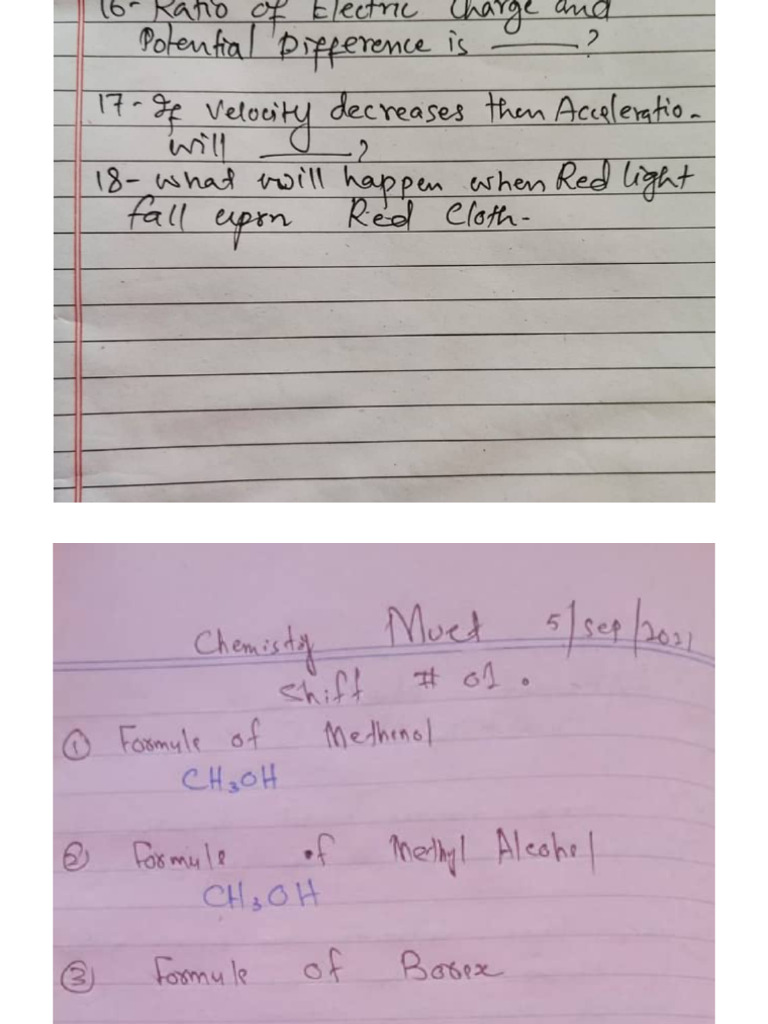 16- Ratio of Electric Charge and
Potential Difference is ____?
17- If Velocity decreases then Acceleratio-
will ____?
18- what will happen when Red light
fall upon Red Cloth-
Chemisty Muet 5/Sep/2021
Shift # 01.
① Formule of Methenol
CH₃OH
② Formule of Methyl Alcohol
CH₃OH
③ Formule of Borex